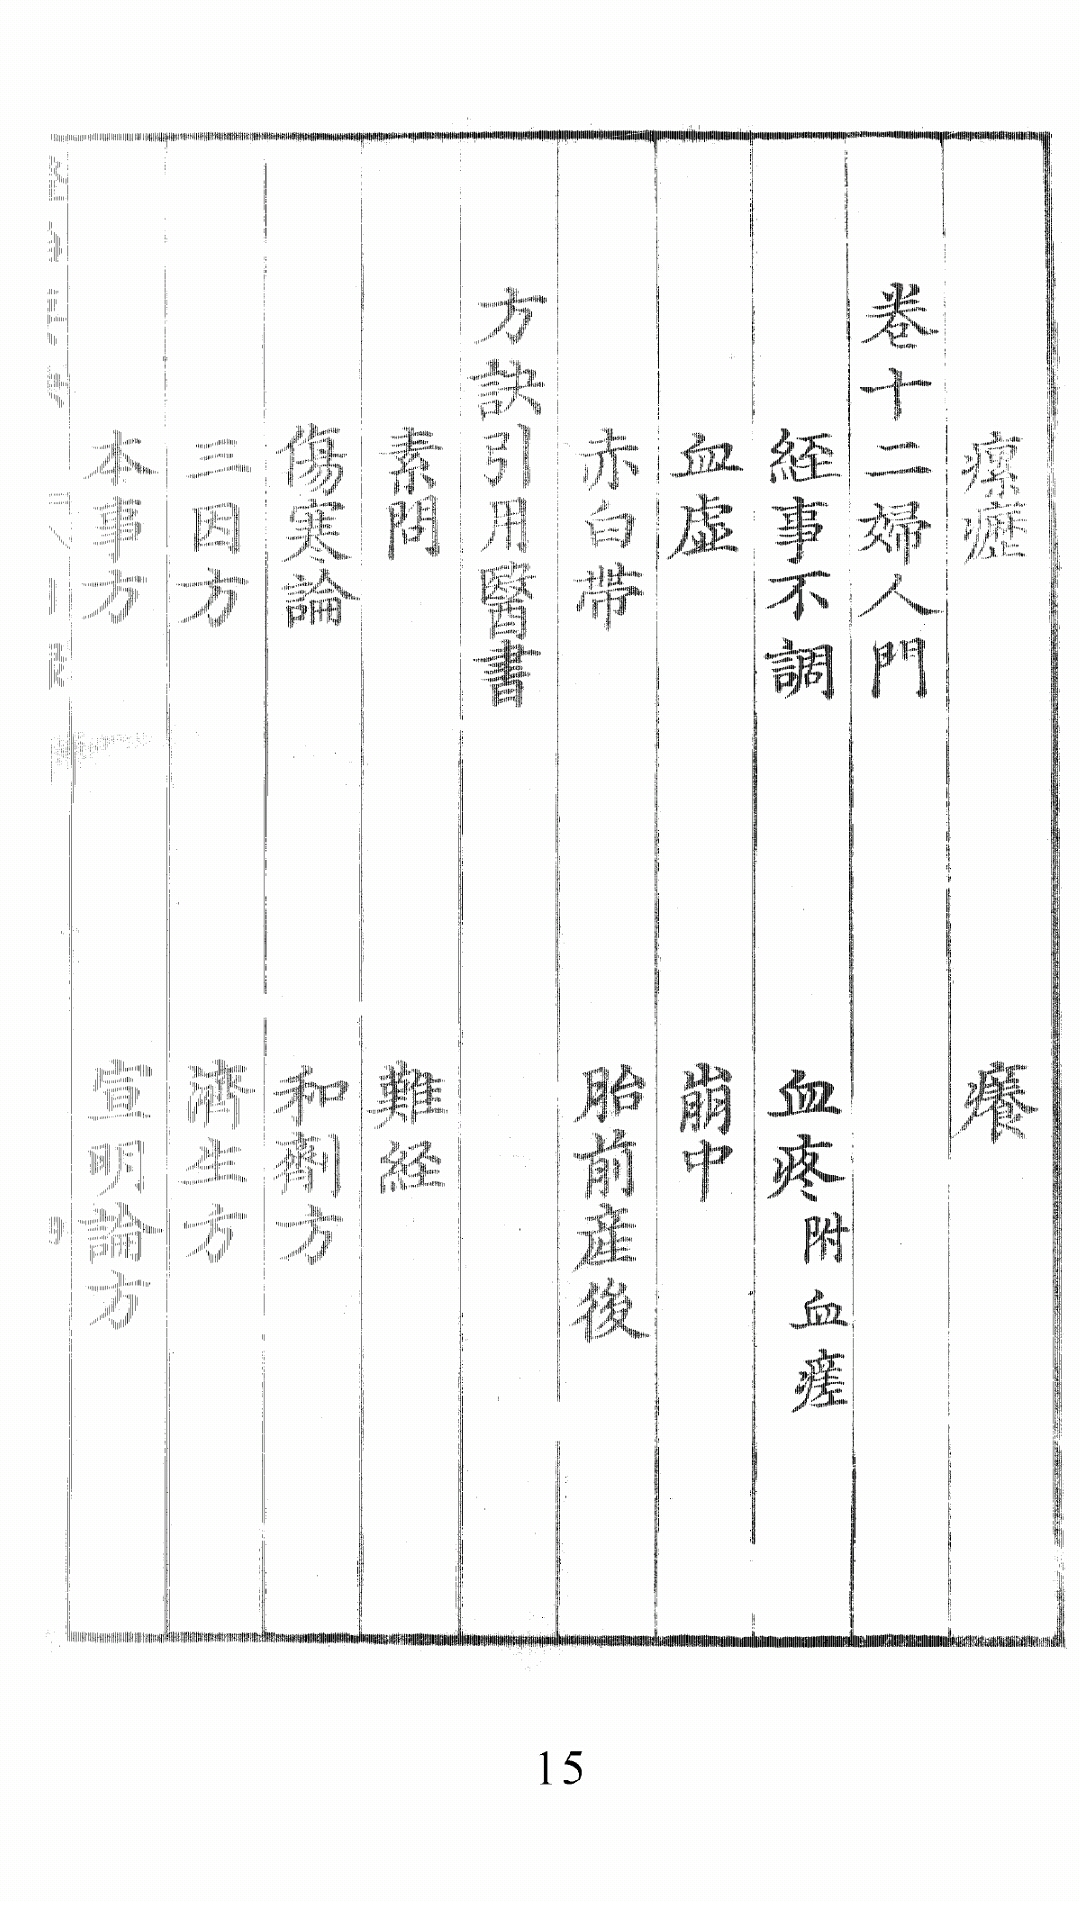 瘰癧　癢
卷十二婦人門
経事不調　血疼附血
血虛　崩中
赤白帶　胎前産後
方訣引用醫書
素問　難経
傷寒論　和劑方
三因方　濟生方
本事方　宣明論方
15